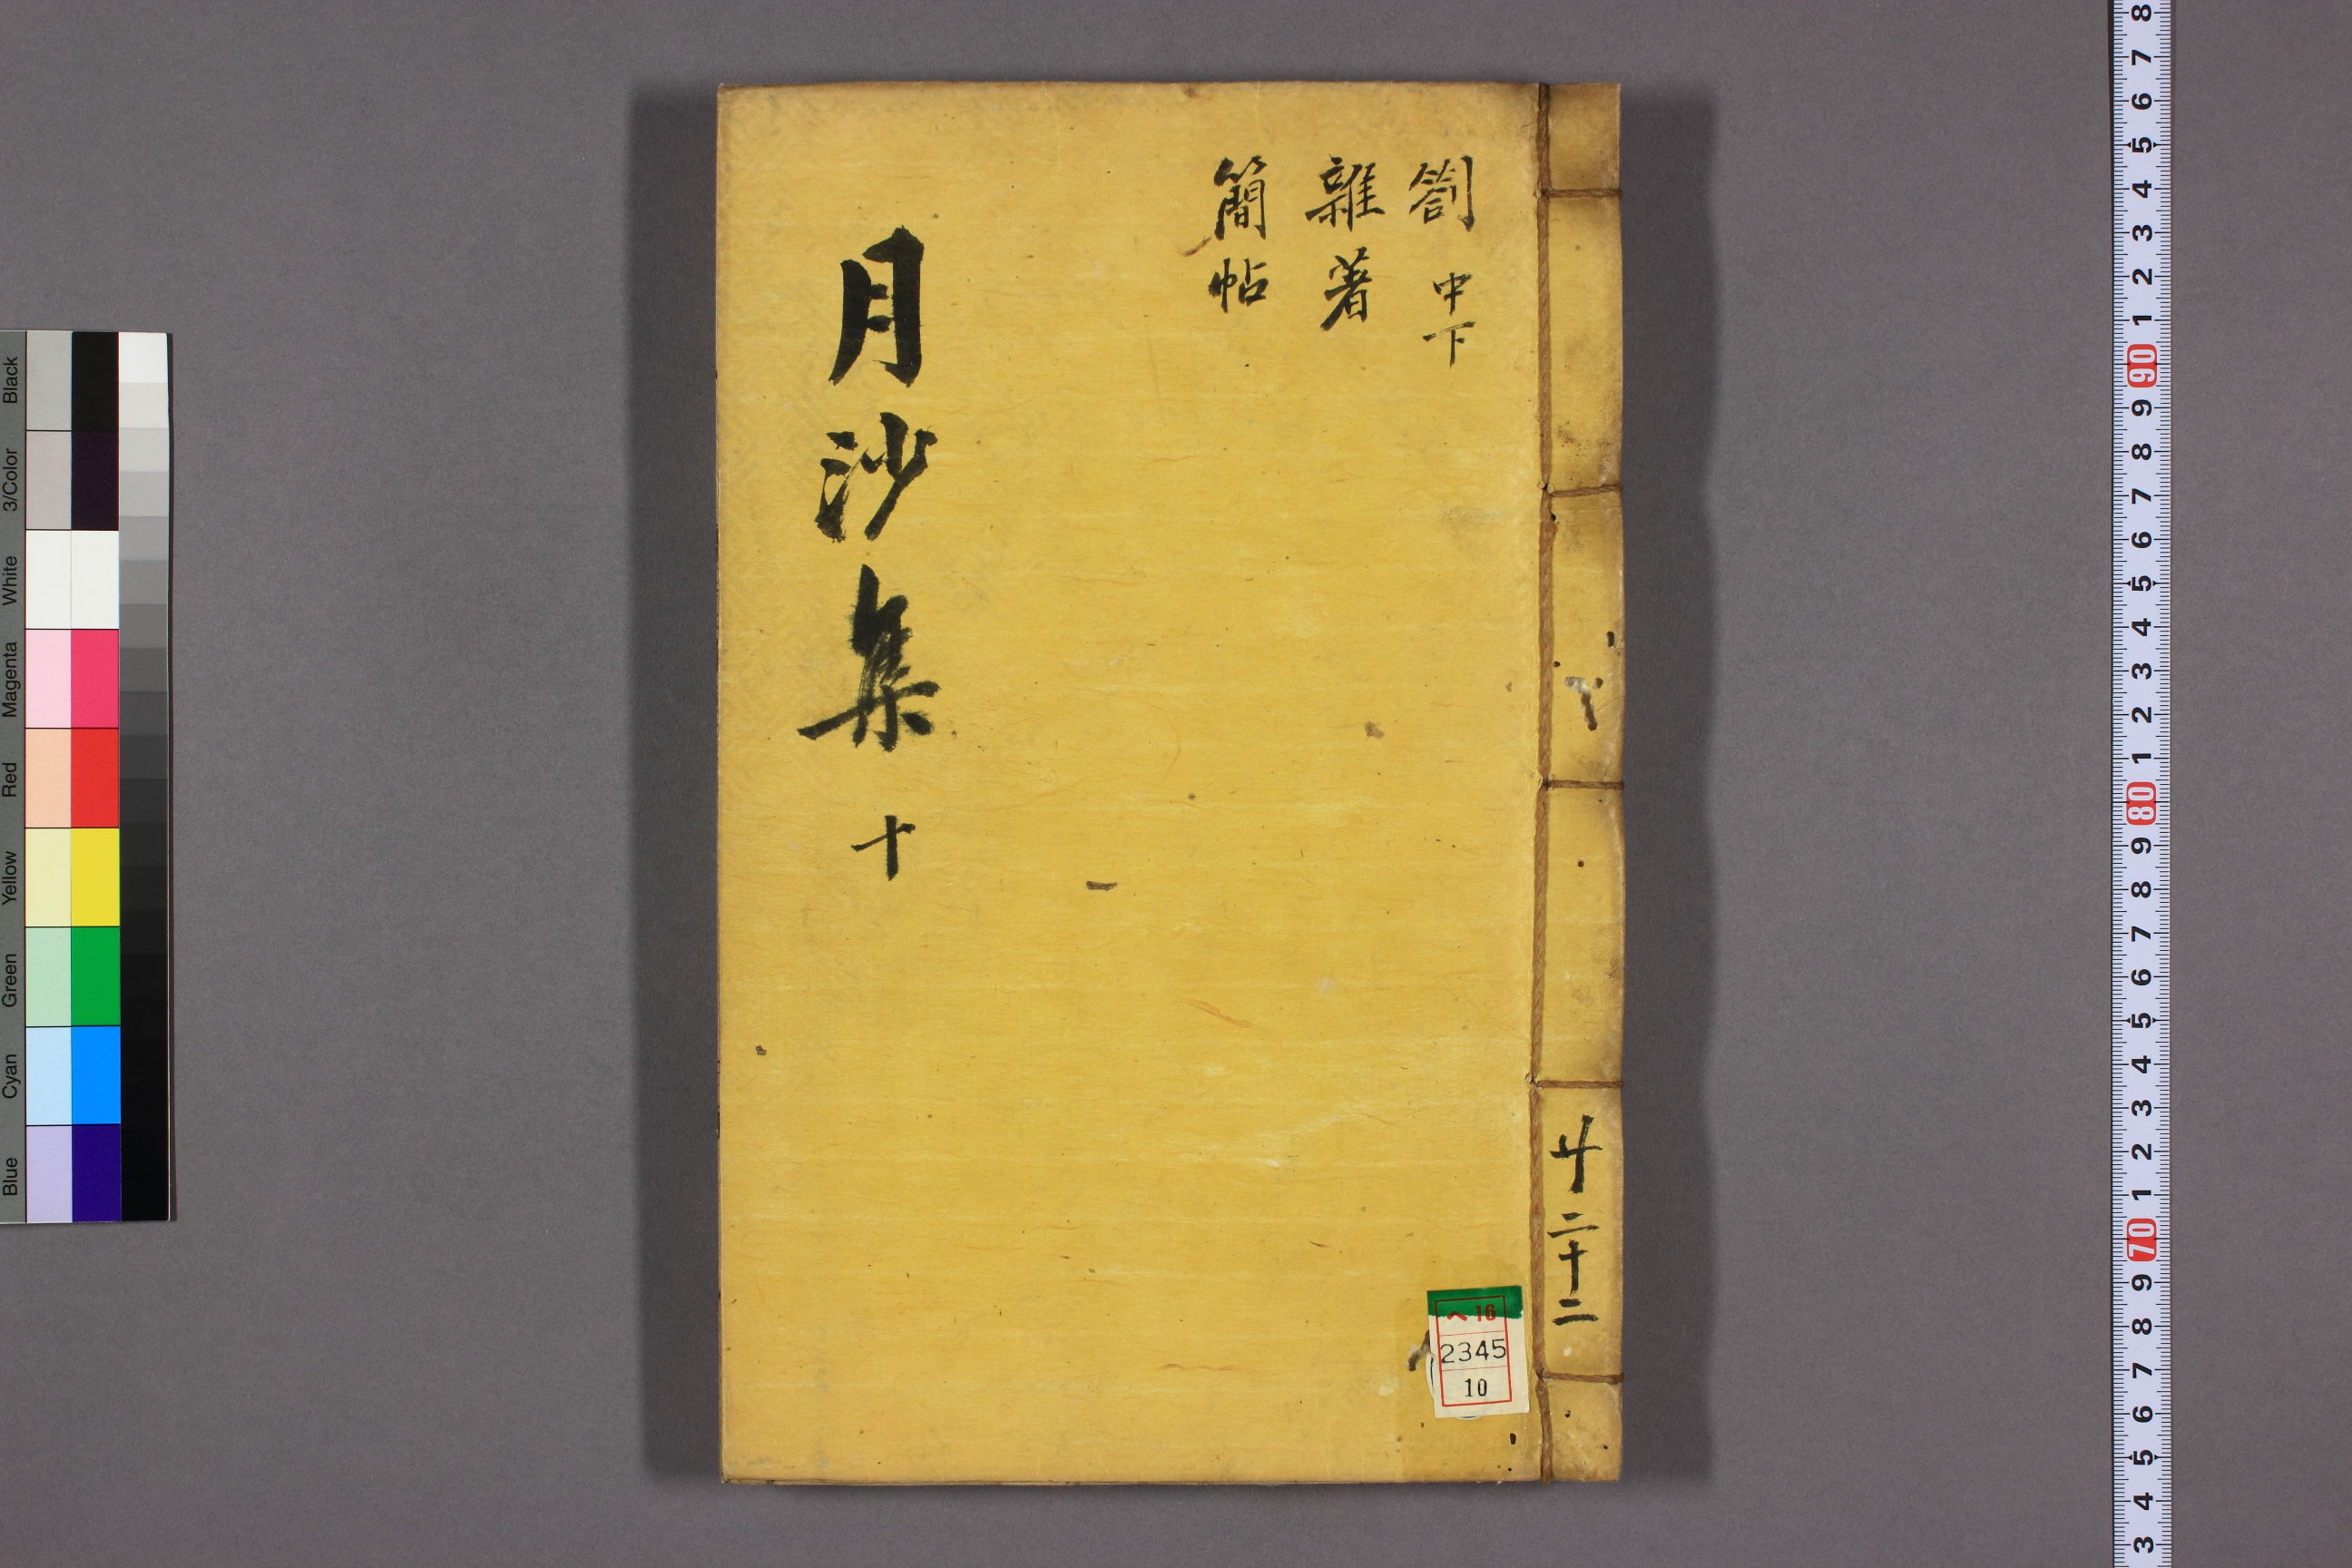 劄 中下
雜著
簡帖
月沙集 十
二十二
へ 16
2345
10
Black
3/Color
White
Magenta
Red
Yellow
Green
Cyan
Blue
8 7 6 5 4 3 2 1 90 9 8 7 6 5 4 3 2 1 80 9 8 7 6 5 4 3 2 1 70 9 8 7 6 5 4 3